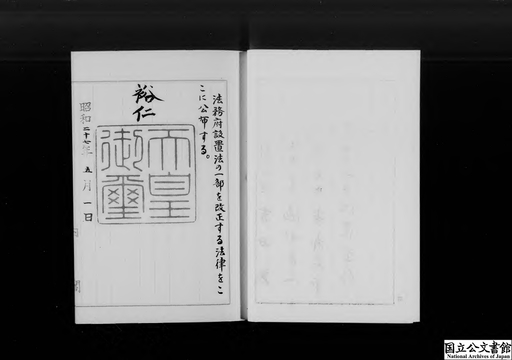 法務府設置法の一部を改正する法律をこ
こに公布する。
裕仁
天皇
御璽
昭和二十七年五月一日
国立公文書館
National Archives of Japan